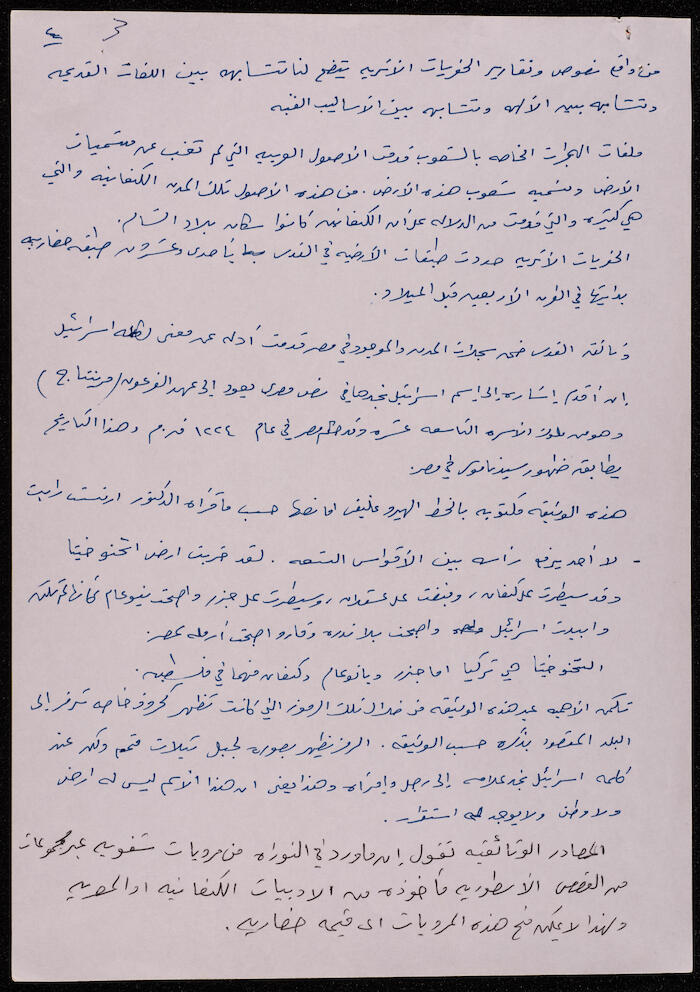 ٣
من واقع نصوص وتقارير الحفريات الأثريه يتضح لنا تشابه بين اللغات القديمه
وتشابه بين الآلهه وتشابه بين الأساليب الفنيه
ملفات الهجرات الخاصه بالشعوب قدمت الأصول العربيه التي لم تغب عن مسميات
الأرض وتسميه شعوب هذه الأرض. من هذه الأصول تلك المدن الكنعانيه والتي
هي كثيره والتي قدمت من الدلاله على أن الكنعانين كانوا سكان بلاد الشام.
الحفريات الأثريه حددت طبقات الأرضيه في القدس بأحدى وعشرون طبقه حضاريه
بدايتها في القرن الأربعين قبل الميلاد.
وثائق القدس ضمن سجلات المدن والموجود في مصر قدمت أدله عن معنى لكلمه اسرائيل
إن أقدم إشاره إلى إسم اسرائيل نجدها في نص مصري يعود إلى عهد الفرعون (مرنبتاح)
وهو من ملوك الأسره التاسعه عشره وقد حكم مصر في عام ١٢٢٤ ق.م وهذا التاريخ
يطابق ظهور سيدنا موسى في مصر.
هذه الوثيقه مكتوبه بالخط الهيروغليفي اما نصها حسب ما قرأه الدكتور ارنست رايت
- لا أحد يرفع رأسه بين الأقواس التسعه. لقد خربت ارض التحنو خيتا
وقد سيطرت على كنعان، وقبضت على عسقلان، وسيطرت على جزر واصبحت ينوعام كأنها لم تكن
وابيدت اسرائيل واصبحت بلا بذره وقارو اصبحت أرمله لمصر.
التحنو خيتا هي تركيا اما جزر ويانوعام وكنعان فهما في فلسطين.
تكمن الأهميه عبر هذه الوثيقه من خلال تلك الرموز التي كانت تظهر كحروف خاصه ترمز إلى
البلد المقصود بذكره حسب الوثيقه. الرمز يظهر بصوره لجبل بثلاث قمم ولكن عند
كلمه اسرائيل نجد علامه إلى رجل وإمرأه وهذا يعني ان هذا الاسم ليس له ارض
ولا وطن ولا يوجد له استقرار.
المصادر الوثائقيه تقول إن ما ورد في التوراه من مرويات شفويه عبر مجموعات
من القصص الأسطوريه مأخوذه من الادبيات الكنعانيه او المصريه
ولهذا لا يمكن منح هذه المرويات اى قيمه حضاريه.